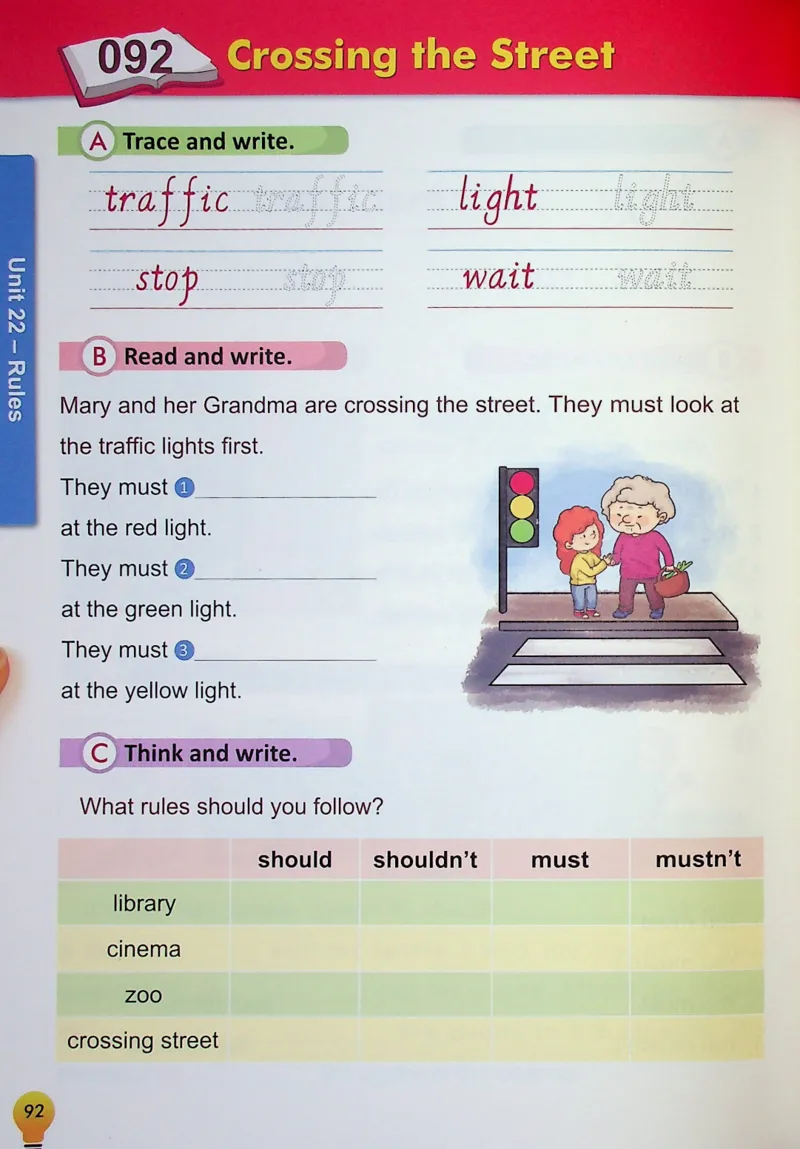 092 Crossing the Street
A Trace and write.
traffic traffic light light
stop stop wait wait
Unit 22 – Rules
B Read and write.
Mary and her Grandma are crossing the street. They must look at
the traffic lights first.
They must 1
at the red light.
They must 2
at the green light.
They must 3
at the yellow light.
C Think and write.
What rules should you follow?
should shouldn't must mustn't
library
cinema
zoo
crossing street
92